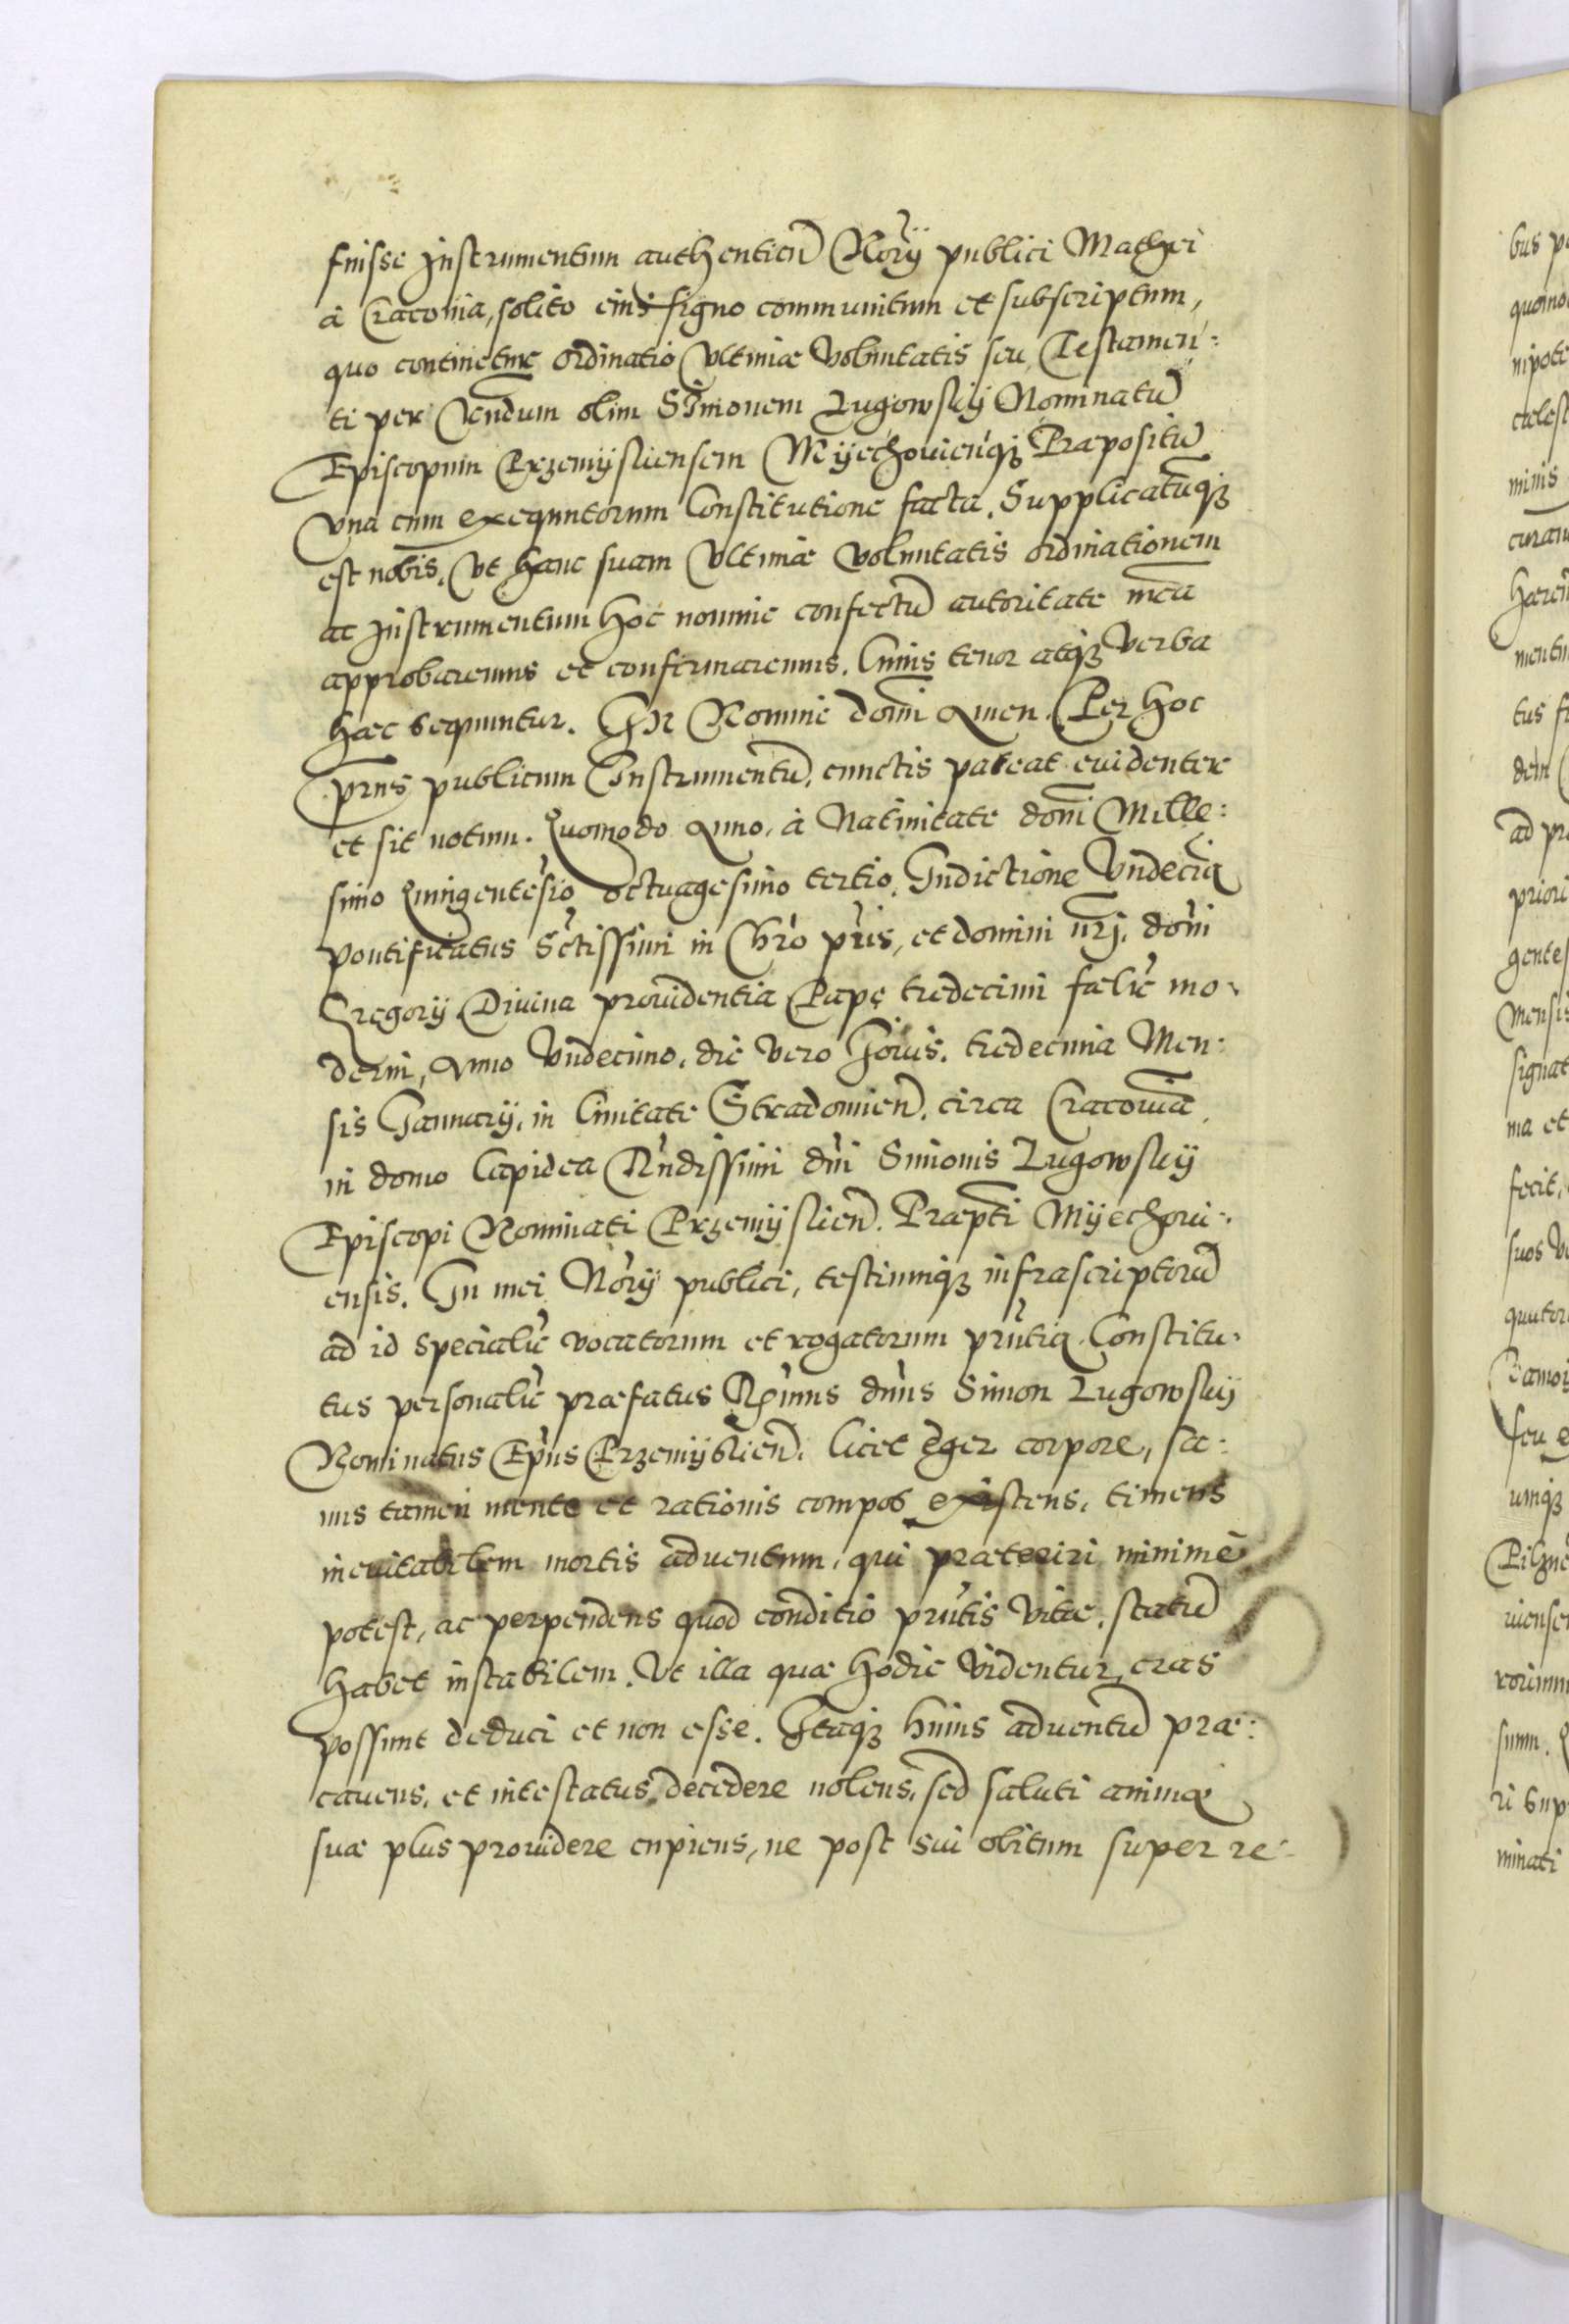 fuisse Instrumentum authenticũ Nory publici Mathęi
à Cracouia, solito eius signo communitum et subscriptum,
quo continetur ordinatio Vltimæ Voluntatis seu Testamen:
ti per Rendum olim Simonem Lugowskij Nominatũ
Episcopum Przemijsliensem Mijechouienq₃ Præpositũ
Vna cum exequutorum Constitutione facta. Supplicatũq₃
est nobis. Vt hanc suam Vltimæ Voluntatis ordinationem
ac Instrumentum hoc nomine confectũ autoritate nr̃a
approbaremus et confirmaremus. Cuius tenor atq₃ Verba
hæc sequuntur. In Nomine domi Amen. Per hoc
prns publicum Instrumentũ, cunctis pateat euidenter
et sit notum. Quomodo Anno, à Natiuitate domi Mille:
simo Quingentesio octuagesimo tertio, Indictione Vndecia
pontificatus Sctissimi in Chro pris, et domini nrj, doni
Gregorij Diuina prouidentia Papę tredecimi fælic mo
derni, Anno Vndecimo, die Vero Iouis, tredecima Men:
sis Ianuarij, in Ciuitate Stradomieñ. circa Cracouiã,
in domo Lapidea Rndissimi dni Simonis Lugowskij
Episcopi Nominati Przemijslieñ. Præpti Mijechoui:
ensis. In mei Nory publici, testiumq₃ infrascriptorũ
ad id specialr vocatorum et rogatorum prntia. Constitu:
tus personalr præfatus Rmus dnus Simon Lugowskij
Nominatus Epus Przemijslieñ. licet ęger corpore, sa:
nus tamen mente et rationis compos existens, timens
ineuitabilem mortis aduentum, qui præteriri minimè
potest, ac perpendens quod conditio prntis Vitæ, statũ
habet instabilem. Vt illa quæ hodie Videntur, cras
possunt deduci et non esse. Itaq₃ huius aduentũ præ:
cauens, et intestatus decedere nolens, sed saluti animæ
suæ plus prouidere cupiens, ne post sui obitum super re: